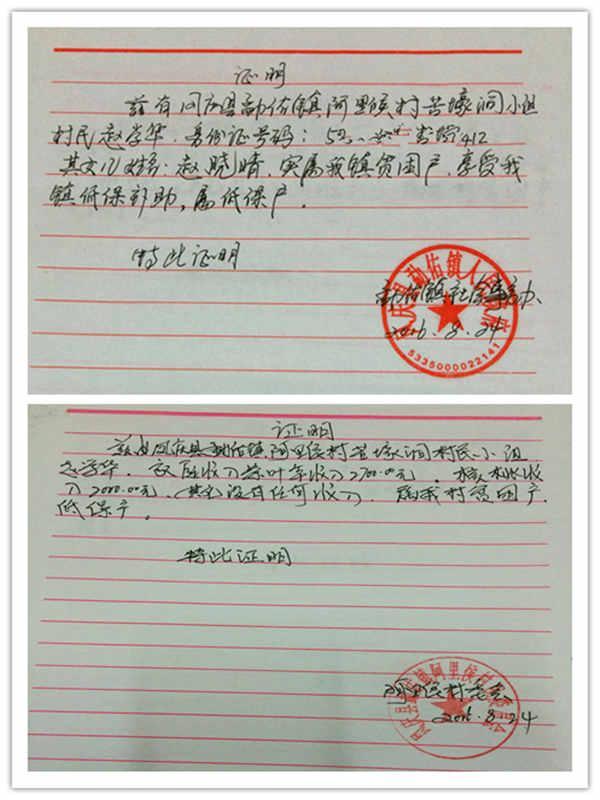 证明
兹有凤庆县勐佑镇阿里侯村苦壕洞小组
村民赵学华,身份证号码:53
412
其女儿姓名:赵晓晴,实属我镇贫困户,享受我
镇低保补助,属低保户.
特此证明
勐佑镇社会事务办
2016.8.24
5335000022141
证明
兹有凤庆县勐佑镇阿里侯村苦壕洞村民小组
赵学华.
茶叶年收入2700.00元.核桃收
入2000.00元,(其它)没有任何收入.属我村贫困户
低保户。
特此证明
阿里侯村委会
2016.8.24